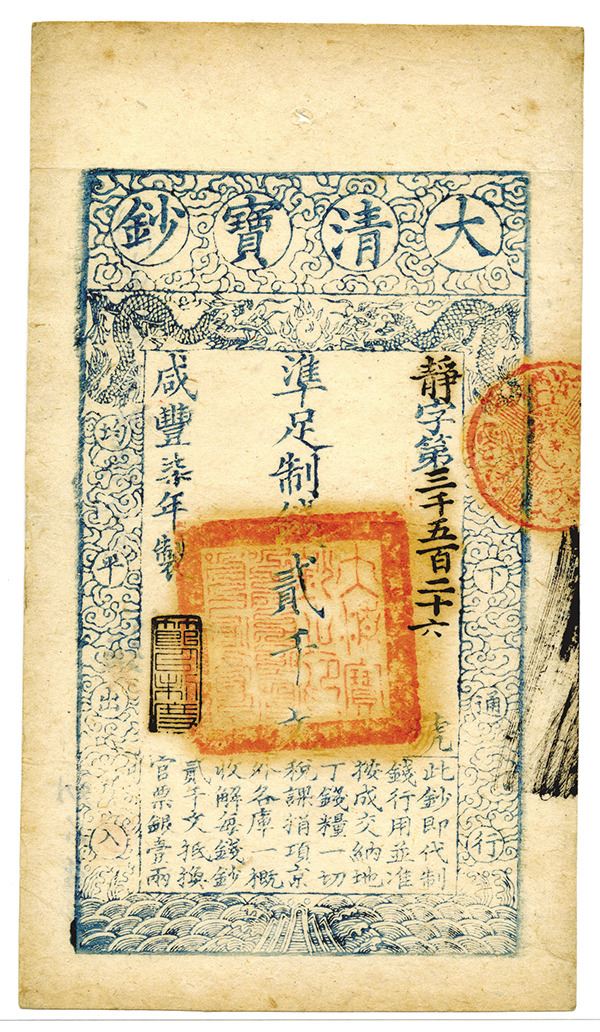 大清寶鈔
下通行
靜字第三千五百二十六號
準足制錢貳千文
咸豐柒年製
均平出入
大清寶鈔之印
此鈔即代制
錢行用並准
按成交納地
丁錢糧一切
稅課捐項京
外各庫一概
收解每錢鈔
貳千文抵換
官票銀壹兩